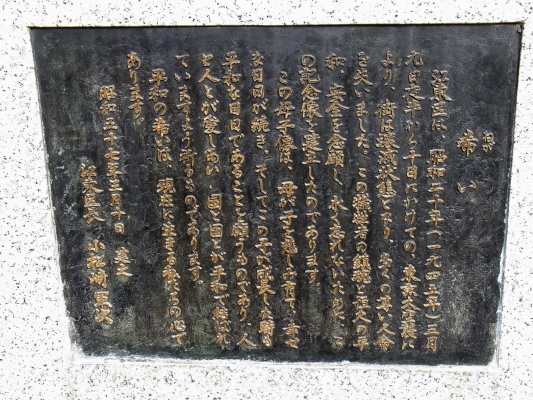 希い
江東区は、昭和二十年(一九四五年)三月
九日夜半から十日にかけての、東京大空襲に
より、街は壊滅状態となり、多くの尊い人命
を失いました。この犠牲者の鎮魂と恒久の平
和、安全を念願し、永く忘れないために、こ
の記念像を建立したのであります。
この母子像は、母が子を慈しみ育て、幸せ
な日日が続き、そしてこの子が成長した時も
平和な日日であることを願うものであり、人
と人とが愛しあい、国と国とが平和で結ばれ
ていますよう祈るものであります。
平和の希いは、現在に生きる私たちの心で
あります。
三月十日 建之
江東区長 小松崎軍次